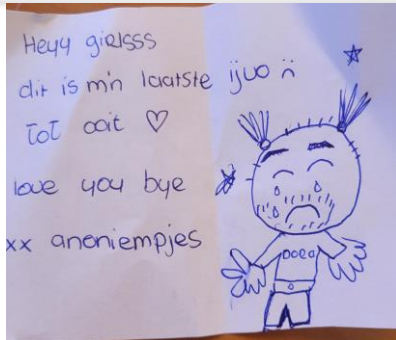 Heyy girlsss
dit is m'n laatste ijuo :(
Tot ooit ♡
love you bye
xx anoniempjes
DORA